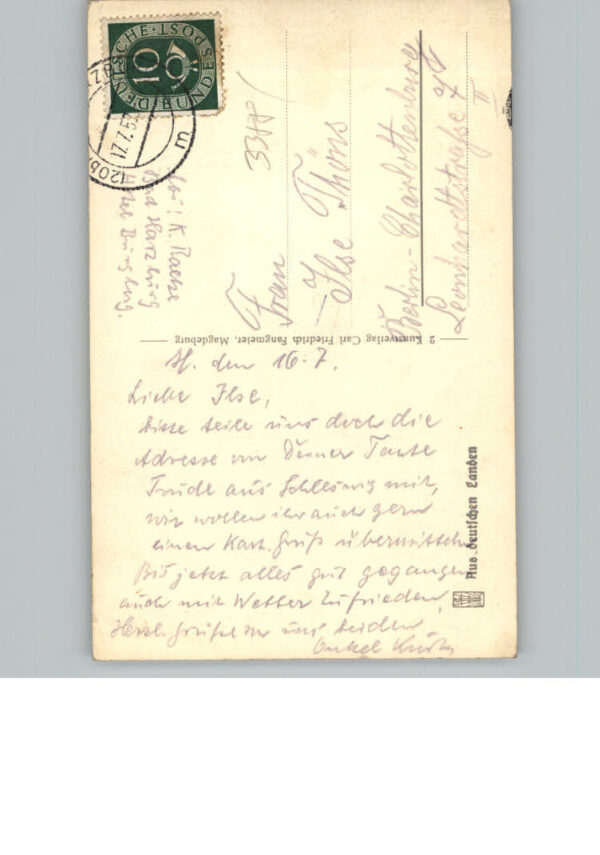 H. den 16.7.
Liebe Ilse,
bitte teile uns doch die
Adresse von Deiner Tante
Trude aus Schleswig mit,
wir wollen ihr auch gern
einen Kart. Gruß übermitteln
Bis jetzt alles gut gegangen
auch mit Wetter zufrieden,
Herzl. Grüße von uns beiden
Onkel
Aus deutschen Landen
2 Kunstverlag Carl Friedrich Fangmeier, Magdeburg
Frau
Ilse Thöns
Berlin-Charlottenburg
Leonhardtstraße
II
Abs: K.
Bad Harzburg
Hotel Burgberg.
33481
DEUTSCHE BUNDESPOST
10
(20b)
17.7.5
m